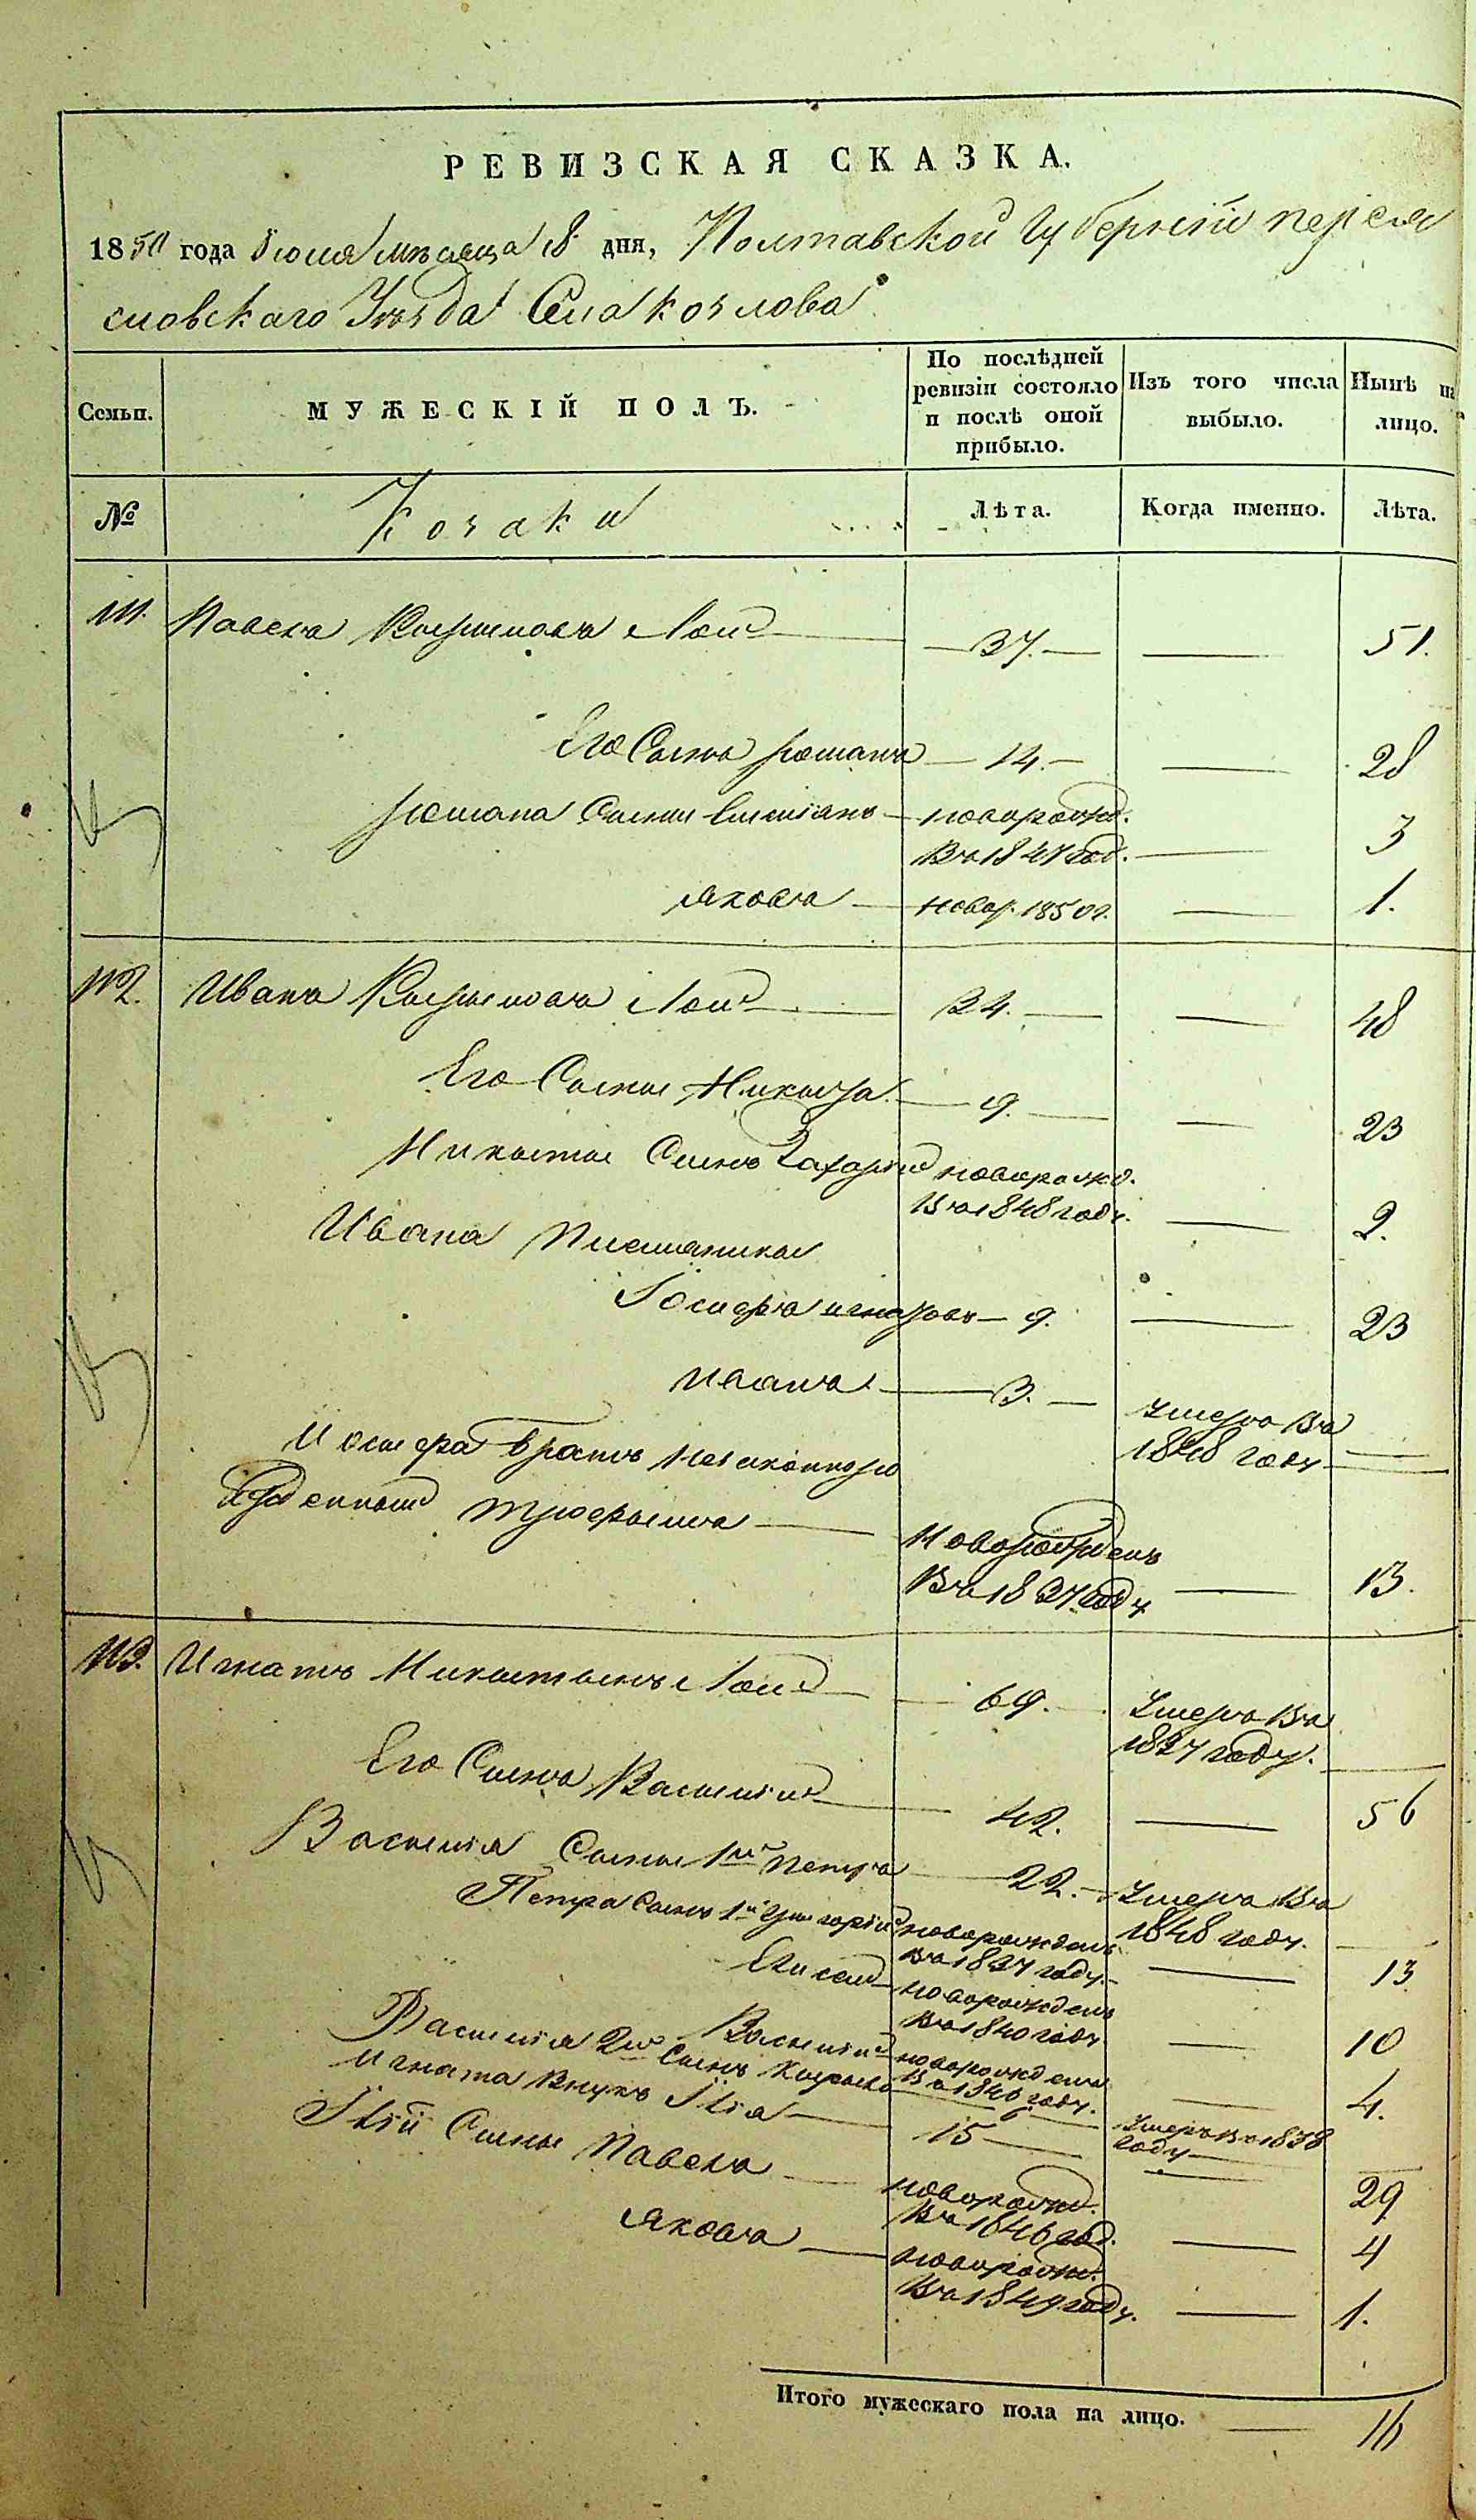 РЕВИЗСКАЯ СКАЗКА.
1850 года Іюля мѣсяца 18 дня, Полтавской Губерніи переяс
ловскаго Уѣзда Села козлова
Семьи.
МУЖЕСКІЙ ПОЛЪ.
По послѣдней ревизіи состояло и послѣ оной прибыло.
Изъ того числа выбыло.
Нынѣ на лицо.
№
Козаки
Лѣта.
Когда именно.
Лѣта.
111. Павелъ 37. 51.
Его Сынъ романъ 14. 28
романа Сыны новорожд.
Въ 1847 год. 3
яковъ новор. 1850 г. 1.
112. Иванъ 34. 48
Его Сынъ Никита 9. 23
Никиты Сынъ Захарій новорожд.
Въ 1848 году. 2.
Ивана Племянники
Іосифъ игнатовъ 9. 23
иванъ 3. умеръ Въ
1848 году
Иосифа братъ незаконноро
жденный трофимъ Новорожденъ
Въ 1837 году 13.
113. Игнатъ Никитинъ 69. Умеръ Въ
1837 году.
Его Сынъ Василій 42. 56
Василія Сыны 1й Петръ 22. умеръ Въ
1848 году.
Петра Сынъ 1й Григорій новорожденъ
Въ 1837 году. 13
Елисей новорожденъ
Въ 1840 году 10
Василія 2й Василій
Сынъ новорожденъ
Въ 1846 году. 4.
Игната Внукъ Ілія 15 29
6 Умеръ Въ 1838
году
Іліи Сыны Павелъ новорожд.
Въ 1846 год. 4
яковъ новорожд.
Въ 1849 году. 1.
Итого мужескаго пола на лицо. 16